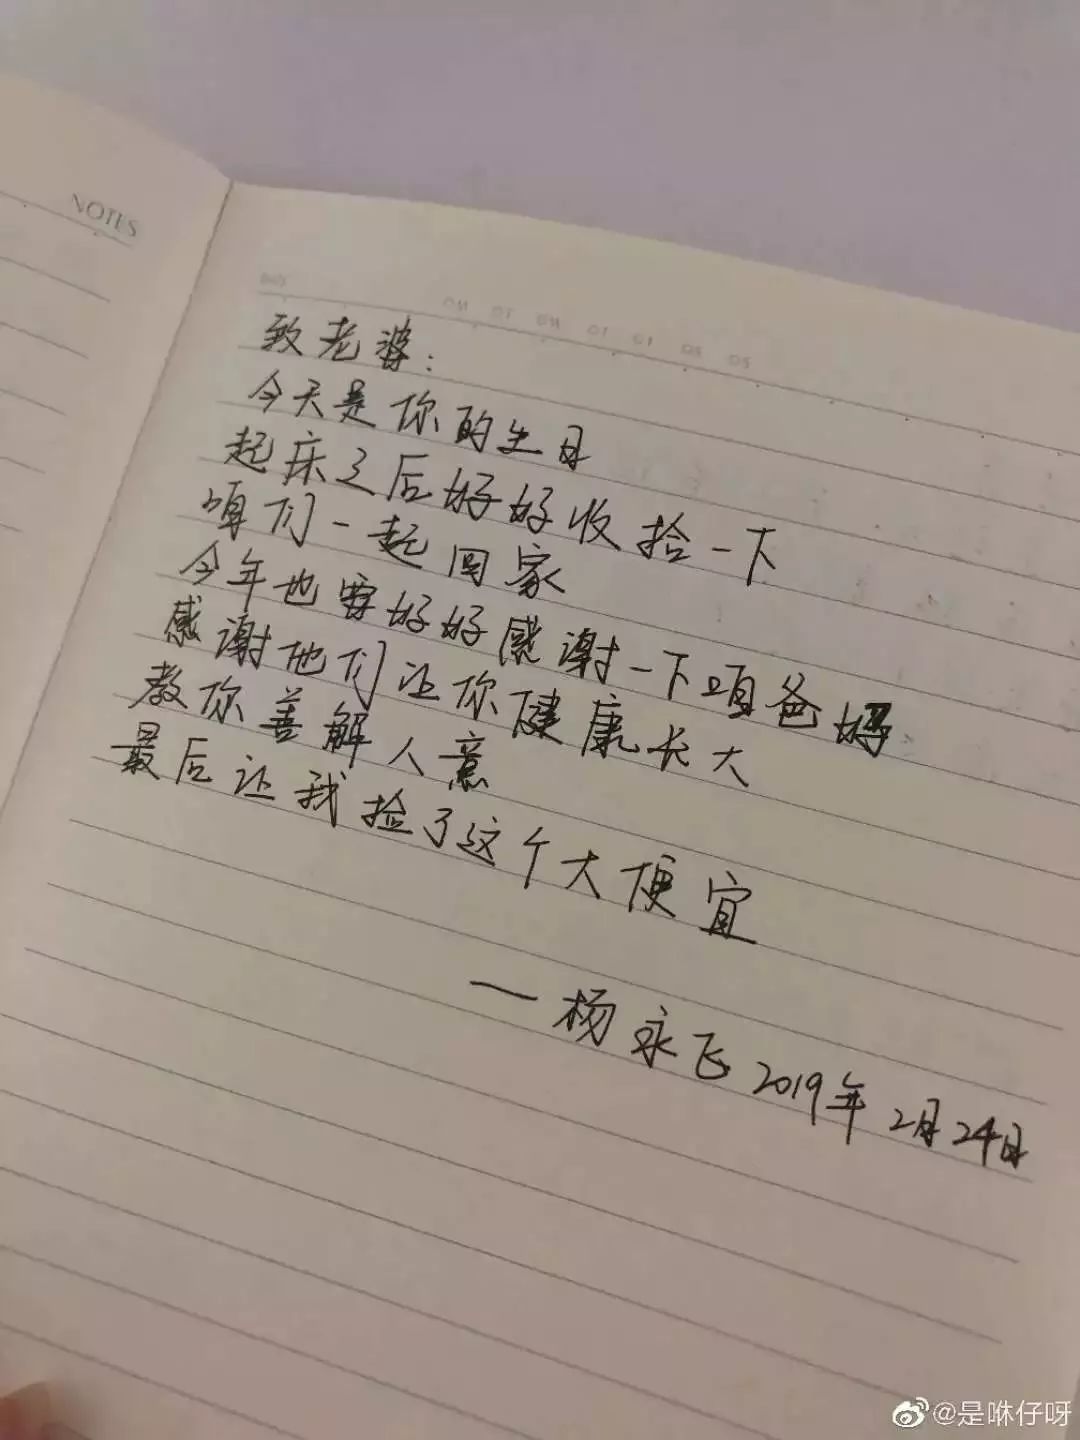 NOTES
致老婆:
今天是你的生日
起床之后好好收拾一下
咱们一起回家
今年也要好好感谢一下咱爸妈
感谢他们让你健康长大
教你善解人意
最后让我捡了这个大便宜
—杨永飞 2019年2月24日
@是咻仔呀